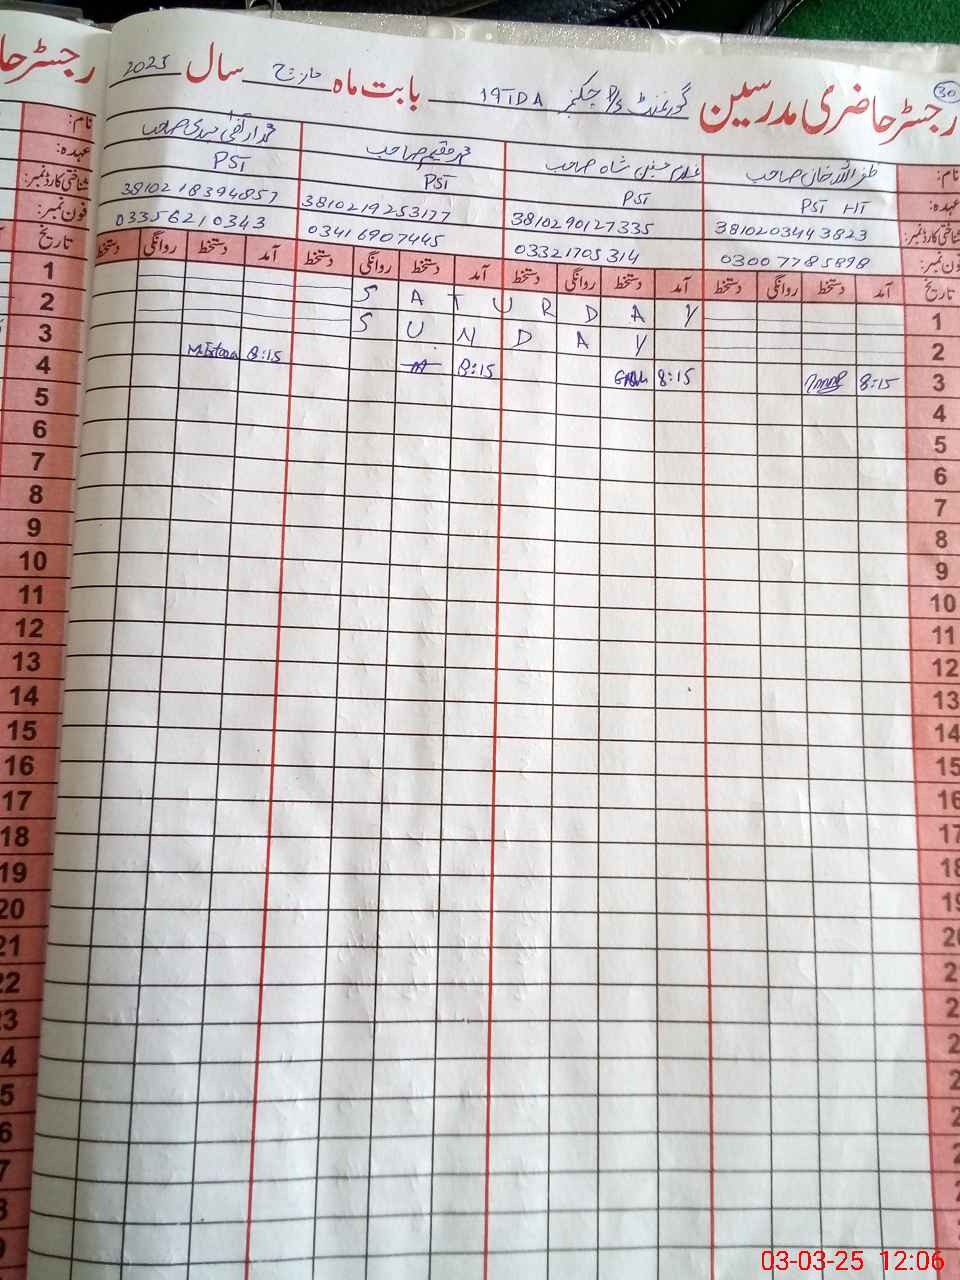 رجسٹر حاضری مدرسین گورنمنٹ P/S چکنمبر 19TDA بابت ماہ مارچ سال 2025
30
نام: ظفر اللہ خان صاحب غلام حسنین شاہ صاحب محمد مقیم صاحب محمد ارتضیٰ حیدری صاحب نام:
عہدہ: PST HT PST PST PST عہدہ:
شناختی کارڈ نمبر: 3810203443823 3810290127335 3810219253177 3810218394857 شناختی کارڈ نمبر:
فون نمبر: 03007785898 03321705314 03416907445 03356210343 فون نمبر:
تاریخ آمد دستخط روانگی دستخط آمد دستخط روانگی دستخط آمد دستخط روانگی دستخط آمد دستخط روانگی دستخط تاریخ
1 SATURDAY 1
2 SUNDAY 2
3 8:15 8:15 8:15 8:15 3
4 4
5 5
6 6
7 7
8 8
9 9
10 10
11 11
12 12
13 13
14 14
15 15
16 16
17 17
18 18
19 19
20 20
21
22
رجسٹر حا
03-03-25 12:06